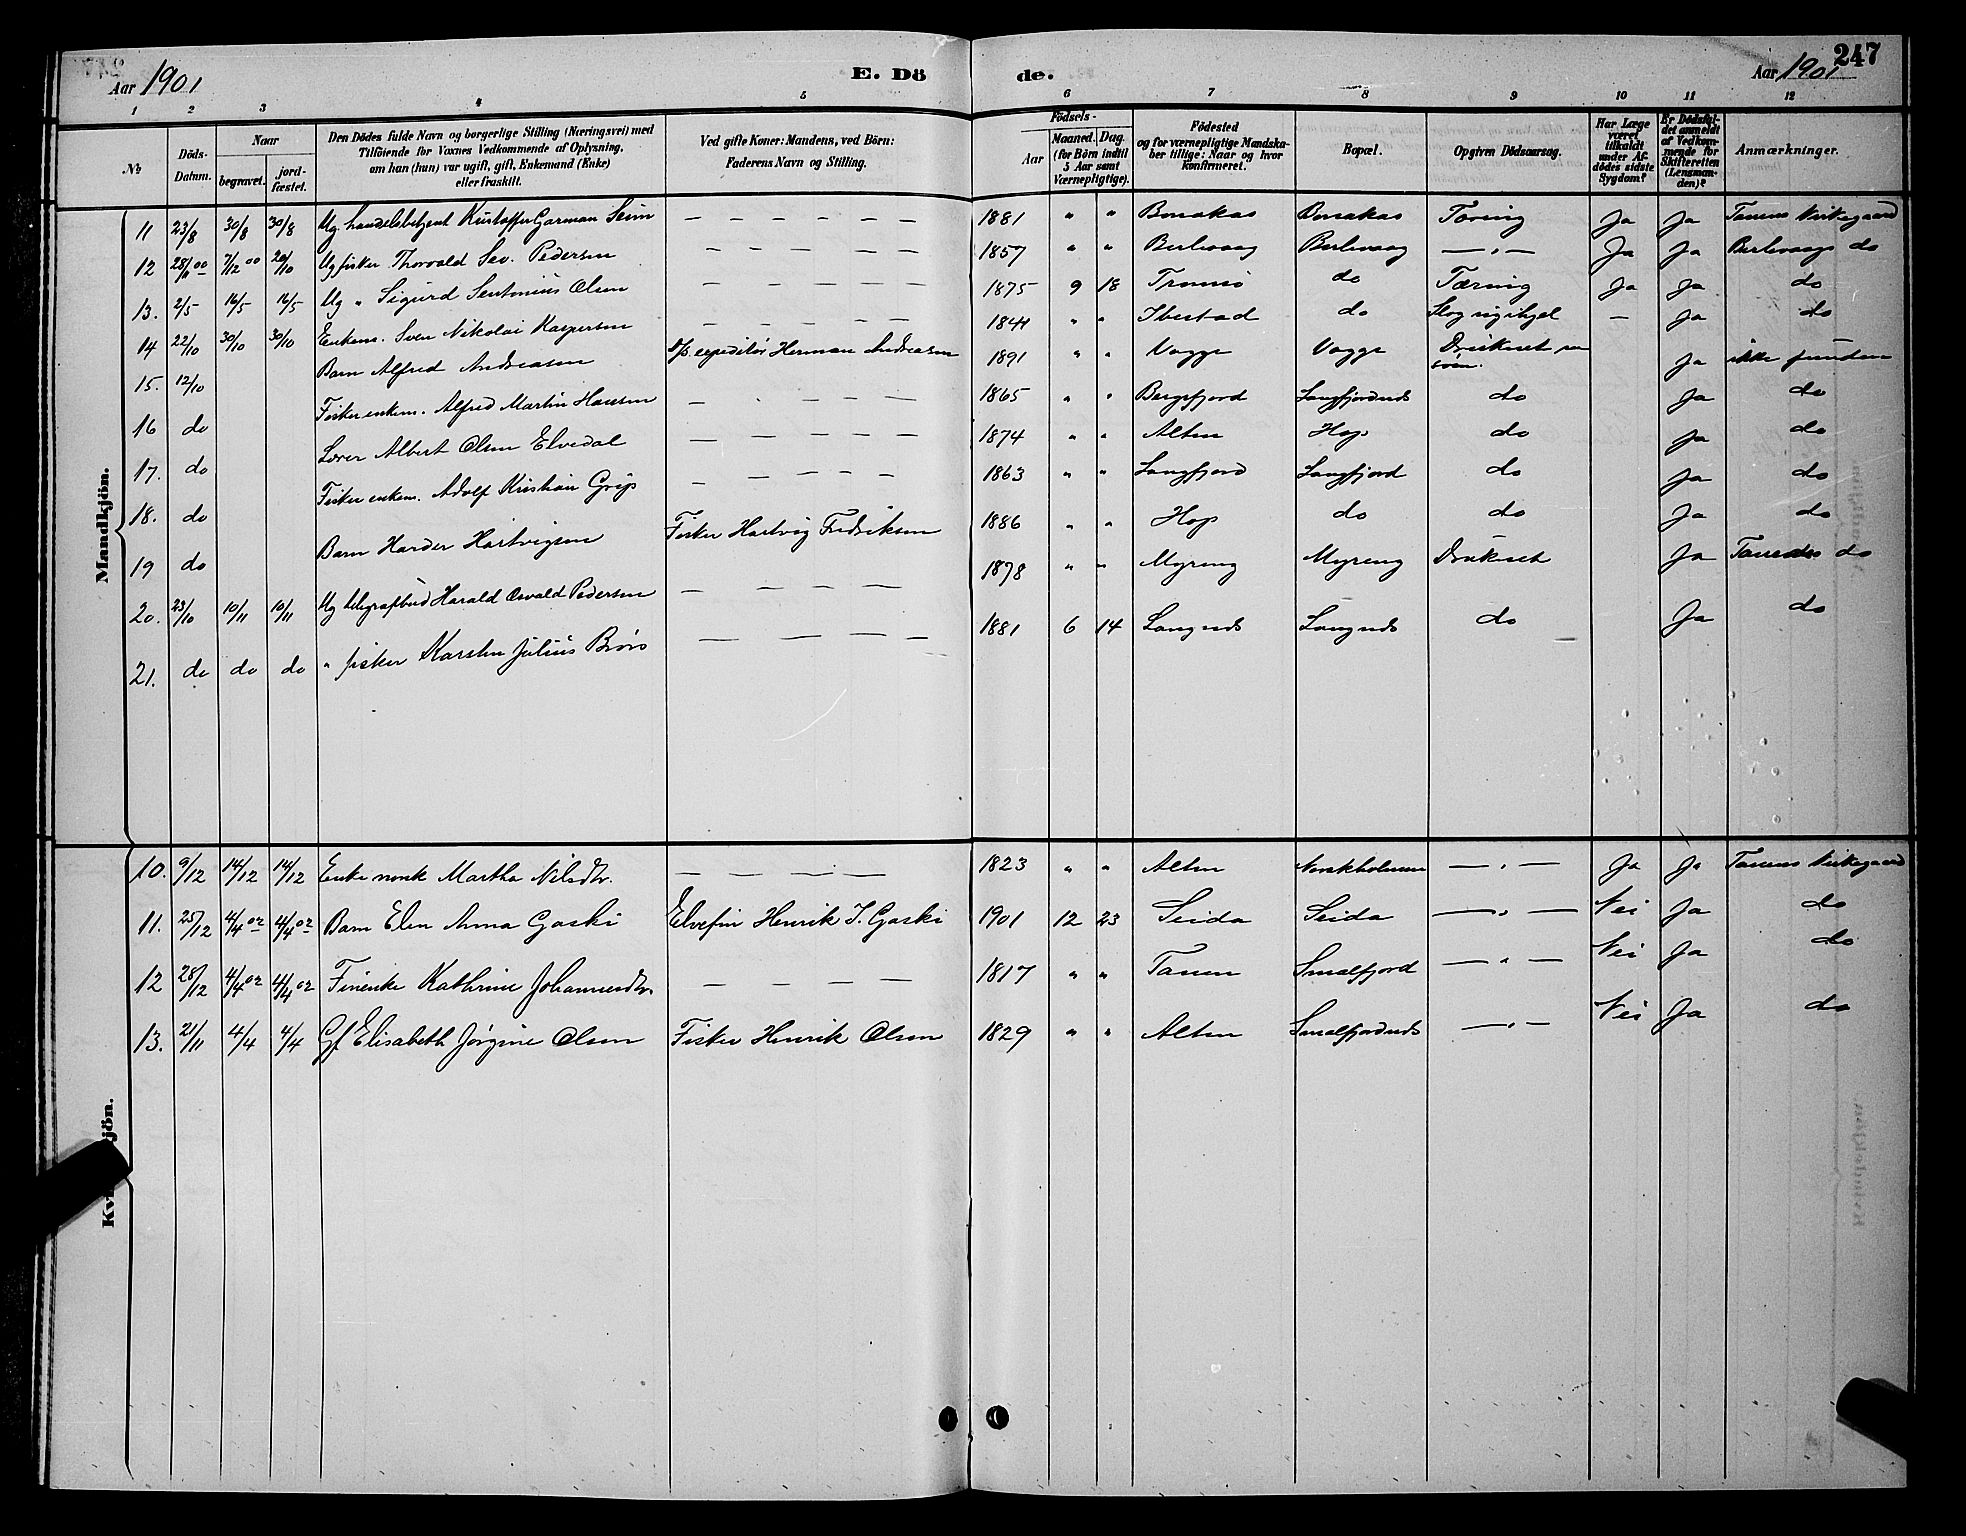 Aar 1901
E. Dö
de.
Aar 1901
247
1 2 3 4 5 6 7 8 9 10 11 12
№
Döds-Datum.
Naar begravet. jord-fæstet.
Den Dödes fulde Navn og borgerlige Stilling (Næringsvei) med
Tilföiende for Voxnes Vedkommende af Oplysning,
om han (hun) var ugift, gift, Enkemand (Enke)
eller fraskilt.
Ved gifte Koner: Mandens, ved Börn:
Faderens Navn og Stilling.
Födsels-
Aar
Maaned. Dag.
(for Börn indtil
5 Aar samt
Værnepligtige).
Födested
og for værnepligtige Mandska-
ber tillige: Naar og hvor
konfirmeret.
Bopæl.
Opgiven Dödsaarsag.
Har Læge
været
tilkaldt
under Af-
dödes sidste
Sygdom?
Er Dödsfal-
det anmeldt
af Vedkom-
mende for
Skifteretten
(Lensman-
den)?
Anmærkninger.
Mandkjön.
11 23/8 30/8 30/8 Ug. handelsbetjent Kristoffer Garman Seim — — — — — — 1881 " " Bonakas Bonakas Tæring Ja Ja Tanens Kirkegaard
12 28/11 00 7/12 00 20/10 Ug fisker Thorvald Sev. Pedersen — — — — — 1857 " " Berlevaag Berlevaag — " — Ja Ja Berlevaags do
13. 2/5 16/5 16/5 Ug " Sigurd Sentonius Olsen — — — — — — 1875 9 18 Tromsø do Tæring Ja Ja do
14 22/10 30/10 30/10 Enkem. Sven Nikolai Kaspersen — — — — — — 1844 " " Ibestad do Slog sig ihjel — Ja do
15. 12/10 Barn Alfred Andreasen Dp. expeditør Herman Andreasen 1891 " " Vagge Vagge Druknet paa søen. Ja ikke funden
16 do Fisker enkem. Alfred Martin Hansen — — — — — 1865 " " Bergsfjord Langfjordnds do Ja do
17. do Lærer Albert Olsen Elvedal — — — — — 1874 " " Alten Hop do Ja do
18. do Fisker enkem. Adolf Kristian Grip — — — — — 1863 " " Langfjord Langfjord do Ja do
19 do Barn Harder Hartvigsen Fisker Hartvig Fredriksen 1886 " " Hop do do Ja do
20. 23/10 10/11 10/11 Ug telegrafbud Harald Osvald Pedersen — — — — 1878 " " Myreng Myreng Druknet Ja Tanens do
21. do do do " fisker Karsten Julius Brøs — — — — 1881 6 14 Langnds Langnds do Ja do
Kv jön.
10. 9/12 14/12 14/12 Enke norsk Martha Nilsdtr. — — — — 1823 " " Alten Norskholmen — " — Ja Ja Tanens Kirkegaard
11. 25/12 4/4 02 4/4 02 Barn Elen Anna Gaski Elvefin Henrik I. Gaski 1901 12 23 Seida Seida — " — Nei Ja do
12 28/12 4/4 02 4/4 02 Finenke Kathrine Johannesdtr. — — — — 1817 " " Tanen Smalfjord — " — Nei Ja do
13. 21/11 4/4 4/4 Gf Elisabeth Jørgine Olsen Fisker Henrik Olsen 1829 " " Alten Smalfjordnds — " — Nei Ja do